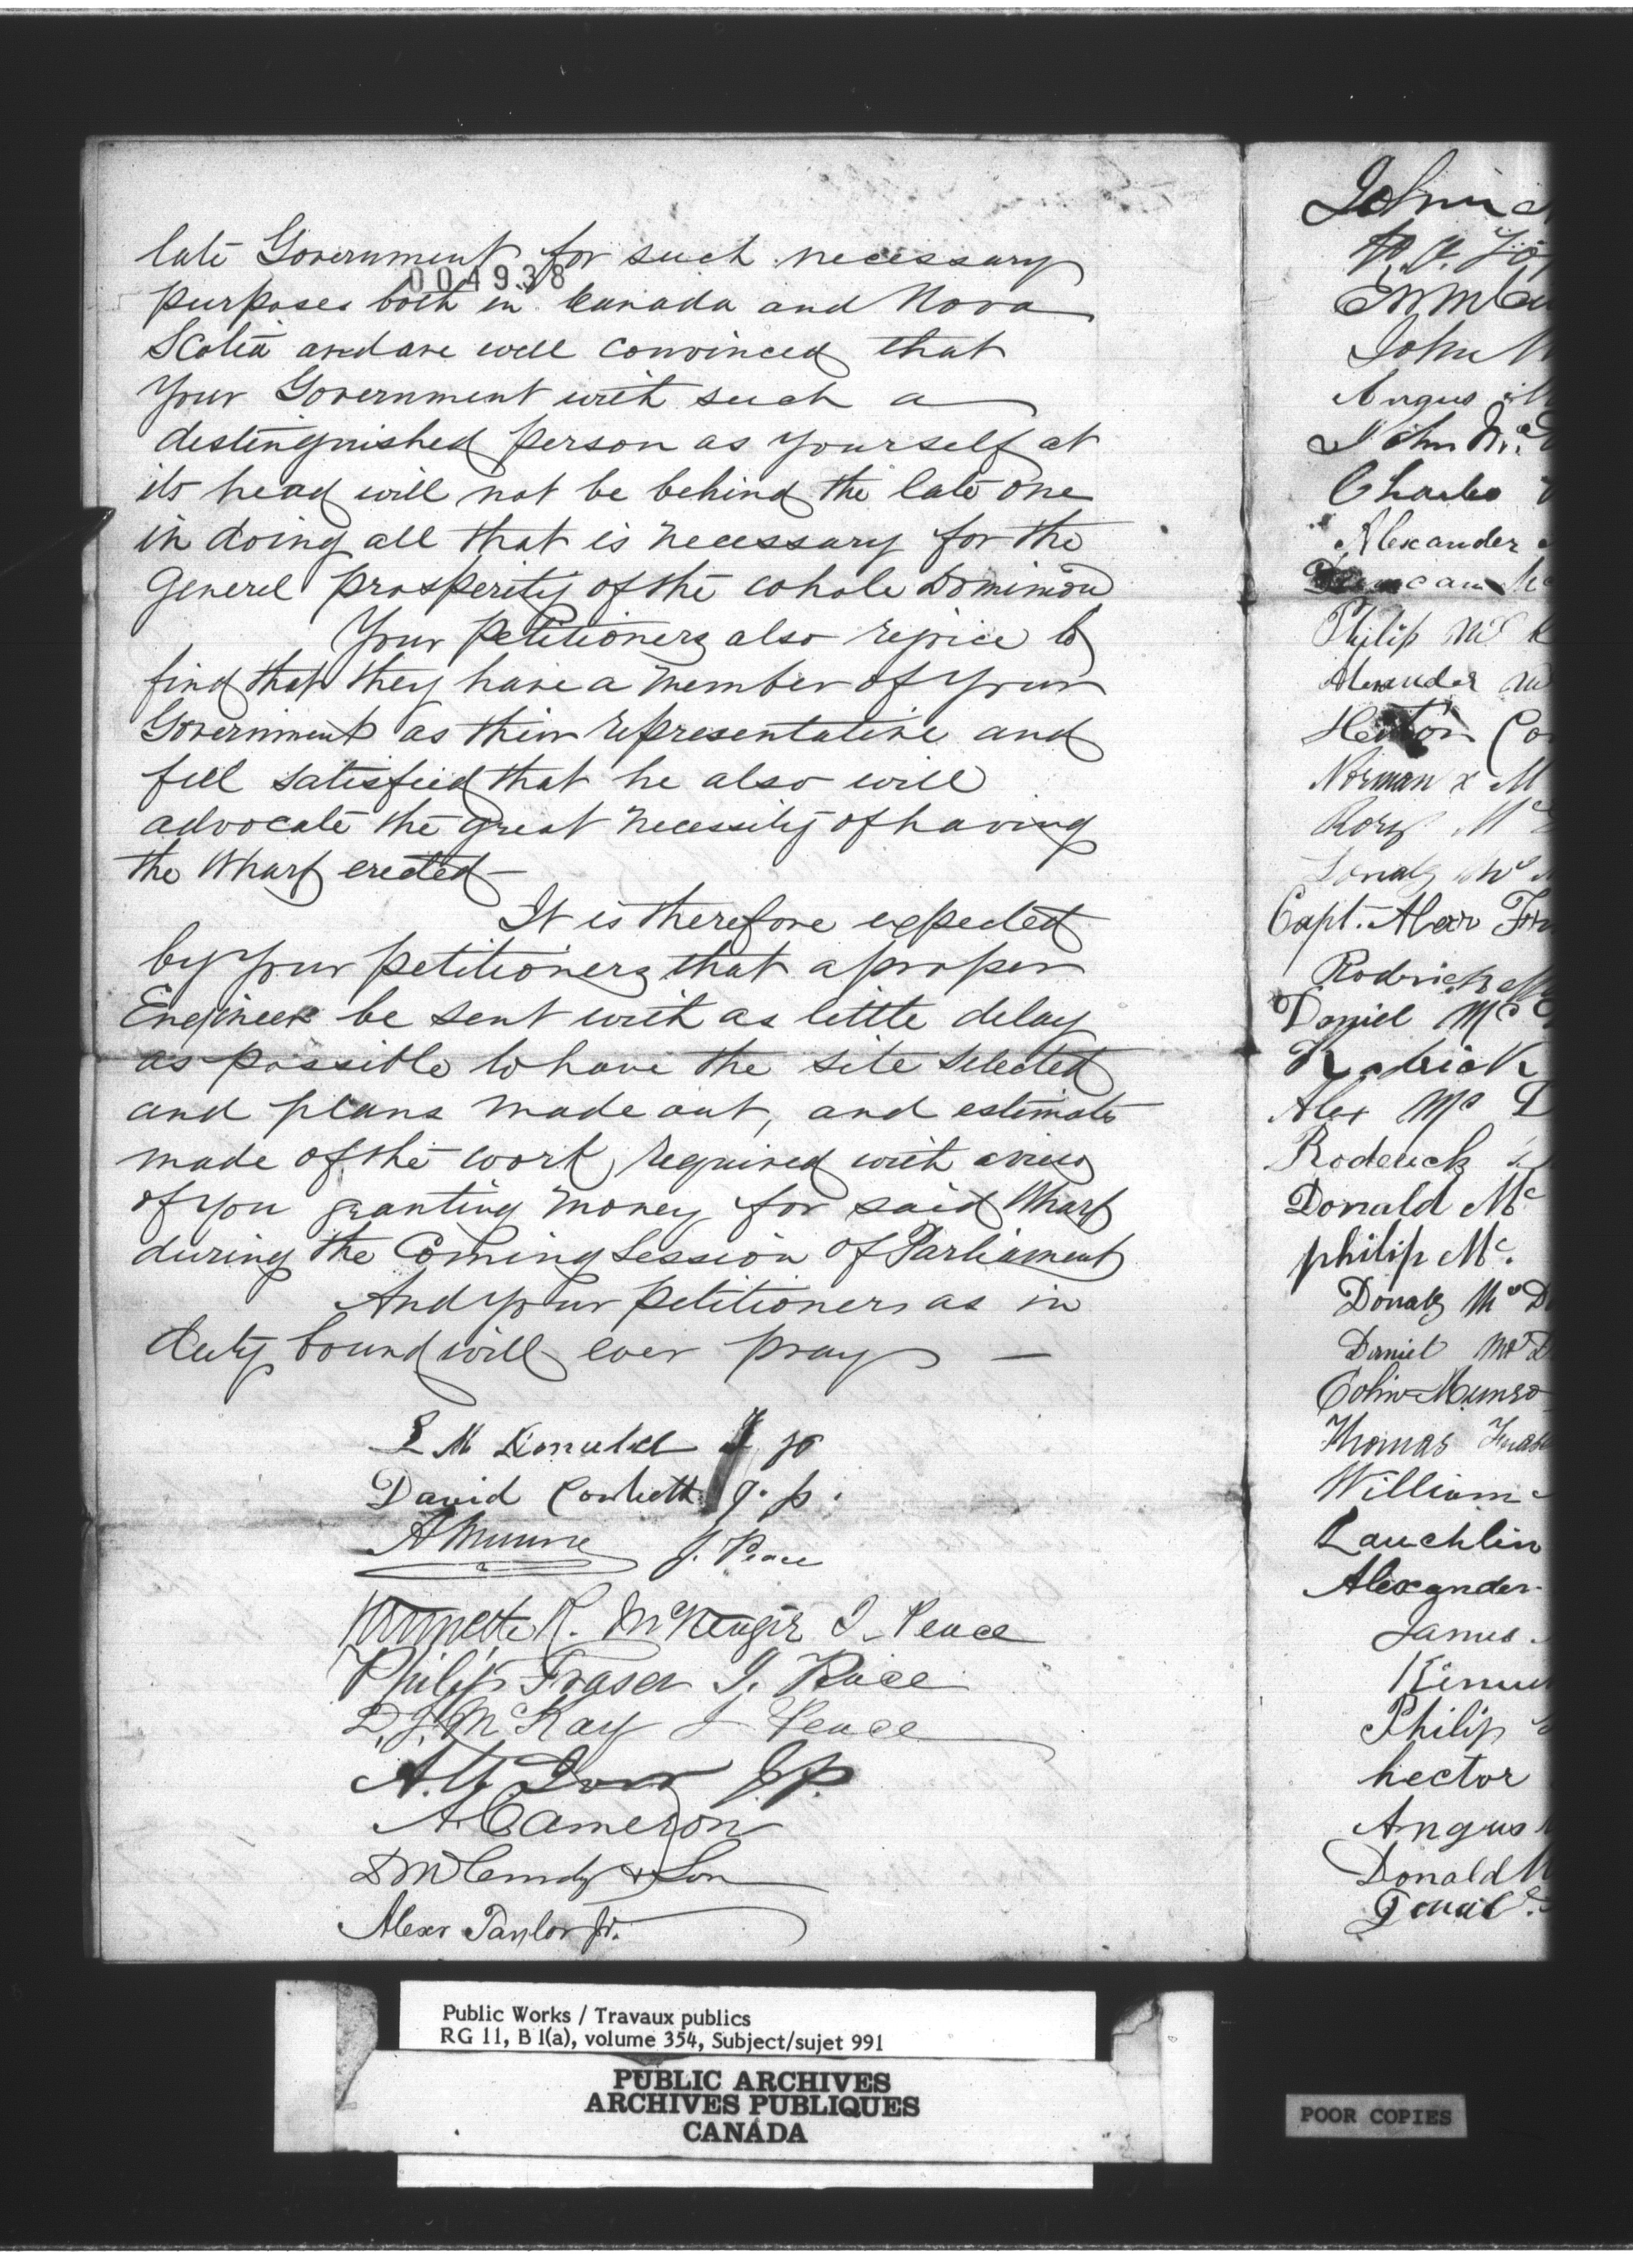 late Government for such necessary
004938
purposes both in Canada and Nova
Scotia and are well convinced that
Your Government with such a
destinguished person as yourself at
its head will not be behind the late one
in doing all that is necessary for the
Generel prosperity of the whole Dominion
Your Petitioners also rejoice to
find that they have a member of your
Government as their representative and
feel satisfied that he also will
advocate the great necessity of having
the Wharf erected —
It is therefore expected
by your petitioners that a proper
Engineer be sent with as little delay
as possible to have the site selected
and plans made out, and estimate
made of the work, required with a view
of you granting money for said Wharf
during the Coming Session of Parliament
And your petitioners as in
duty bound will ever pray —
L M Donald J P
David Corbett J. P.
A Munro J. Peace
Kenneth R. McKenzie J. Peace
Philip Fraser J. Peace
D. J. McKay J Peace
A. J. P.
A Cameron
& Son
Alexr Taylor Jr.
John
John
Angus
John
Charles
Alexander
Duncan Mc
Philip Mc
Alexander
Hector Co
Norman x M
Rory Mc
Donald Mc
Capt. Alexr
Roderick
Daniel Mc
Roderick
Alex Mc D
Roderick
Donald Mc
philip Mc
Donald Mc D
Daniel Mc D
Colin Munro
Thomas Frase
William
Lauchlin
Alexander
James
Philip
hector
Angus
Donald M
Public Works / Travaux publics
RG 11, B 1(a), volume 354, Subject/sujet 991
PUBLIC ARCHIVES
ARCHIVES PUBLIQUES
CANADA
POOR COPIES